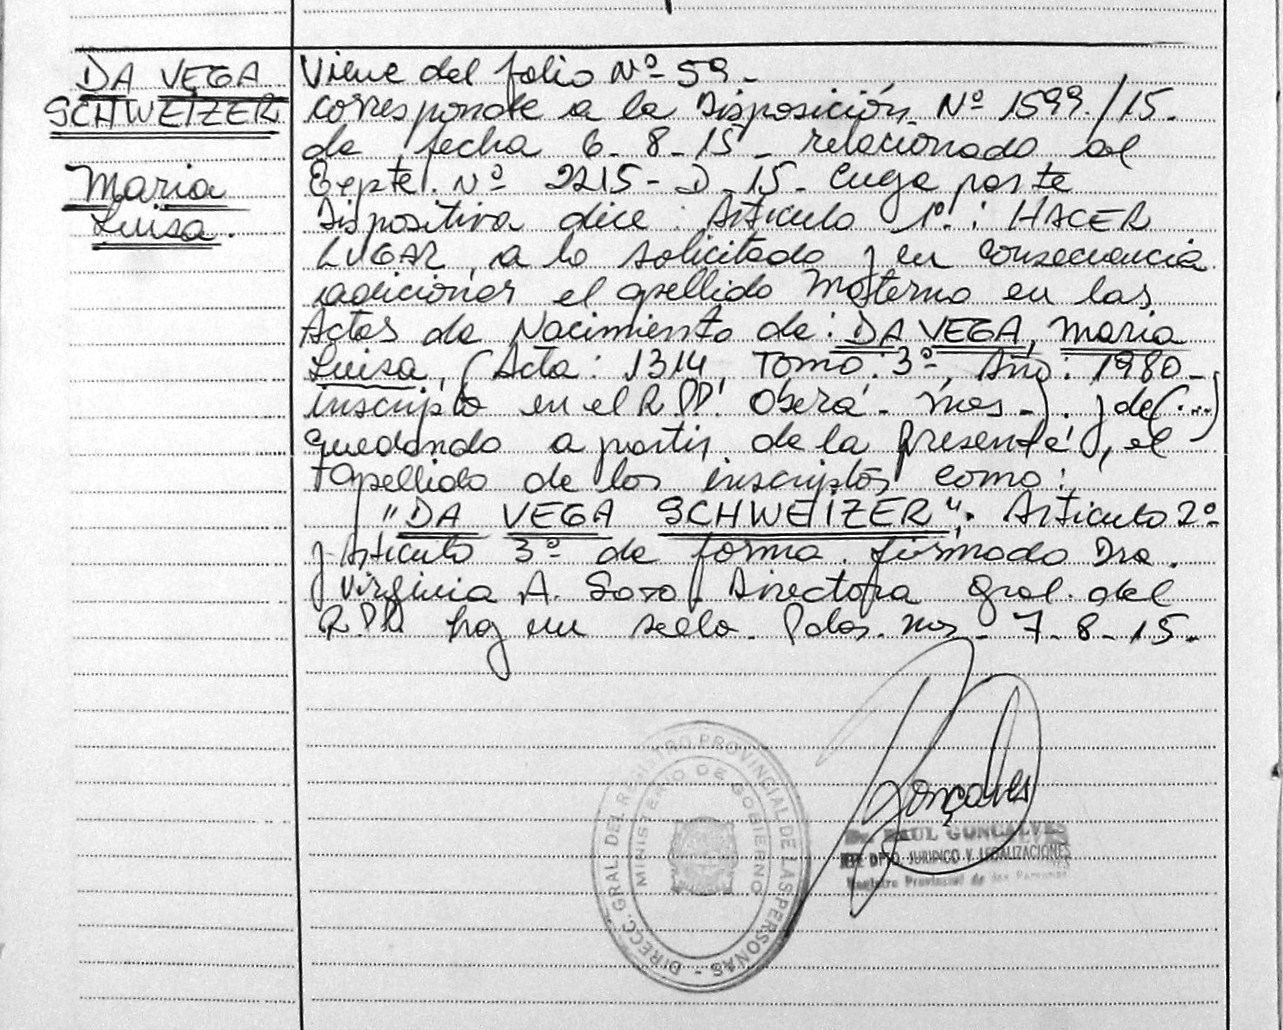 DA VEGA
SCHWEIZER
Maria
Luisa.
Viene del folio Nº 59-
corresponde a la Disposición Nº 1599/15.
de fecha 6-8-15- relacionado al
Expte. Nº 2215-D-15- Cuya parte
Dispositiva dice: Articulo 1º: HACER
LUGAR, a lo solicitado y en consecuencia
adicionar el apellido Materno en las
Actas de Nacimiento de: DA VEGA, Maria
Luisa, (Acta: 1314, Tomo: 3º, Año: 1980-
inscripto en el RPP. Oberá- Mnes-). y de(...)
quedando a partir de la presente, el
Apellido de los inscriptos como:
"DA VEGA SCHWEIZER". Articulo 2º
y Articulo 3º de forma. firmado Dra.
Virginia A. Directora Gral. del
R.PP. hay un sello. Pdas. Mns- 7-8-15-
Gonçalves
Dr. RAUL GONCALVES
JEFE DPTO. JURIDICO Y LEGALIZACIONES
Registro Provincial de las Personas
DIRECC. GRAL. DEL REGISTRO PROVINCIAL DE LAS PERSONAS -
MINISTERIO DE GOBIERNO